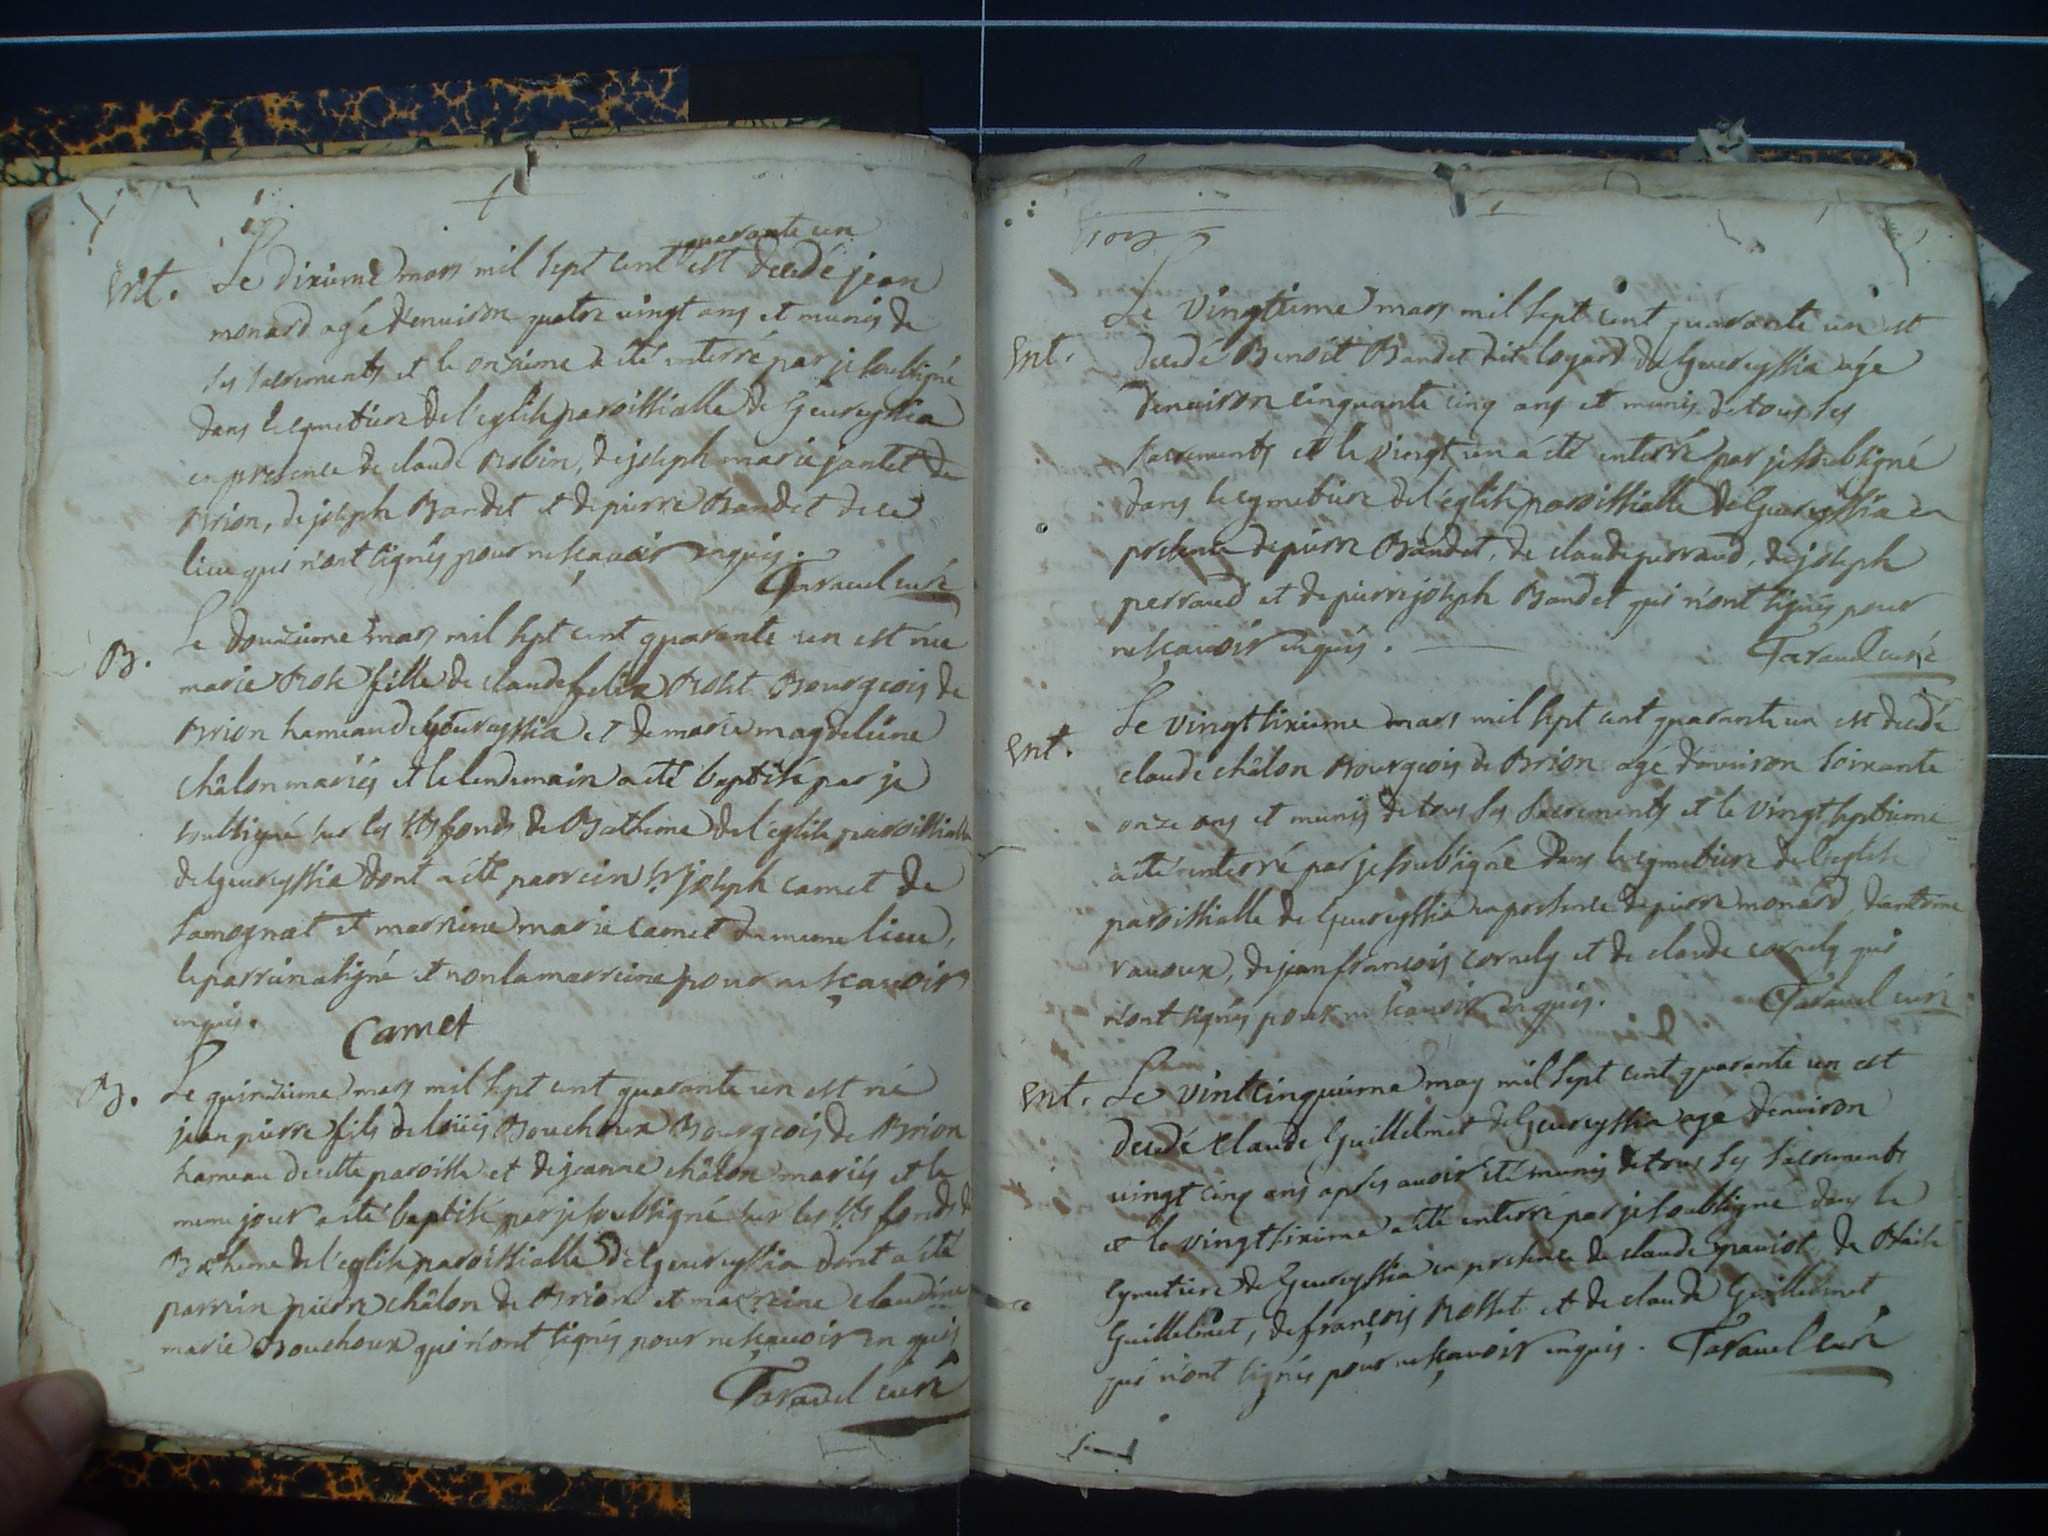 quarante un
Ent. Le dixieme mars mil sept cent est decedé jean
monard agé d'environ quatre vingt ans et munis de
ses sacrements et le onzieme a été enterré par je soubsigné
dans le cymetiere de l'eglise paroissialle de Geureyssia
en presence de claude Robin, de joseph marie jantet de
Brion, de joseph Bandet et de pierre Bandet de ce
lieu qui n'ont signés pour ne sçavoir enquis.
Taravel curé
B. Le douzieme mars mil sept cent quarante un est née
marie Rose fille de claude felix Rost Bourgeois de
Brion hameau de Geureyssia et de marie magdeleine
châlon mariés et le lendemain a été baptisée par je
soubsigné sur les sts fonds de Batheme de l'eglise paroissialle
de Geureyssia dont a été parrein sr joseph camet de
samognat et marreine marie camet du meme lieu,
le parrein a signé et non la marreine pour ne sçavoir
enquis. Camet
B. Le quinzieme mars mil sept cent quarante un est né
jean pierre fils de loüis Bouchoux Bourgeois de Brion
hameau de cette paroisse et de jeanne châlon mariés et le
meme jour a été baptisé par je soubsigné sur les sts fonds de
Batheme de l'eglise paroissialle de Geureyssia dont a été
parrein pierre châlon de Brion et marreine claudine
marie Bouchoux qui n'ont signés pour ne sçavoir enquis
Taravel curé
Le vingtieme mars mil sept cent quarante un est
Ent. decedé Benoit Bandet dit loyard de Geureyssia agé
d'environ cinquante cinq ans et munis de tous ses
sacrements et le vingt un a été enterré par je soubsigné
dans le cymetiere de l'eglise paroissialle de Geureyssia en
presence de pierre Bandet, de claude perraud, de joseph
perraud et de pierre joseph Bandet qui n'ont signés pour
ne sçavoir enquis.
Taravel curé
Le vingt sixieme mars mil sept cent quarante un est decedé
Ent. claude châlon Bourgeois de Brion agé d'environ soixante
onze ans et munis de tous ses sacrements et le vingt septieme
a été enterré par je soubsigné dans le cymetiere de l'eglise
paroissialle de Geureyssia en presence de pierre monard, d'antoine
ravoux, de jean françois cornely et de claude cornely qui
n'ont signés pour ne sçavoir enquis. Taravel curé
Ent. Le vint cinquieme may mil sept cent quarante un est
decedé claude Guillelmet de Geureyssia agé d'environ
vingt cinq ans aprés avoir été munis de tous ses sacrements
et le vingt sixieme a été enterré par je soubsigné dans le
cymetiere de Geureyssia en presence de claude paviot, de Blaise
Guillelmet, de françois Rosset et de claude Guillelmet
qui n'ont signés pour ne sçavoir enquis. Taravel curé